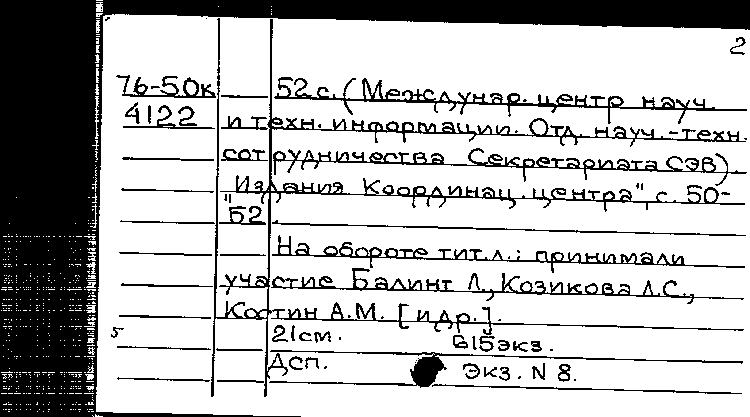 2
76-50к 52 с. (Междунар. центр науч.
4122 и техн. информации. Отд. науч.-техн.
сотрудничества Секретариата СЭВ).
"Издания Координац. центра", с. 50-
52.
На обороте тит. л.: принимали
участие Балинт Л., Козикова Л.С.,
Костин А.М. [и др.].
21см. 615экз.
Дсп. Экз. N 8.
5